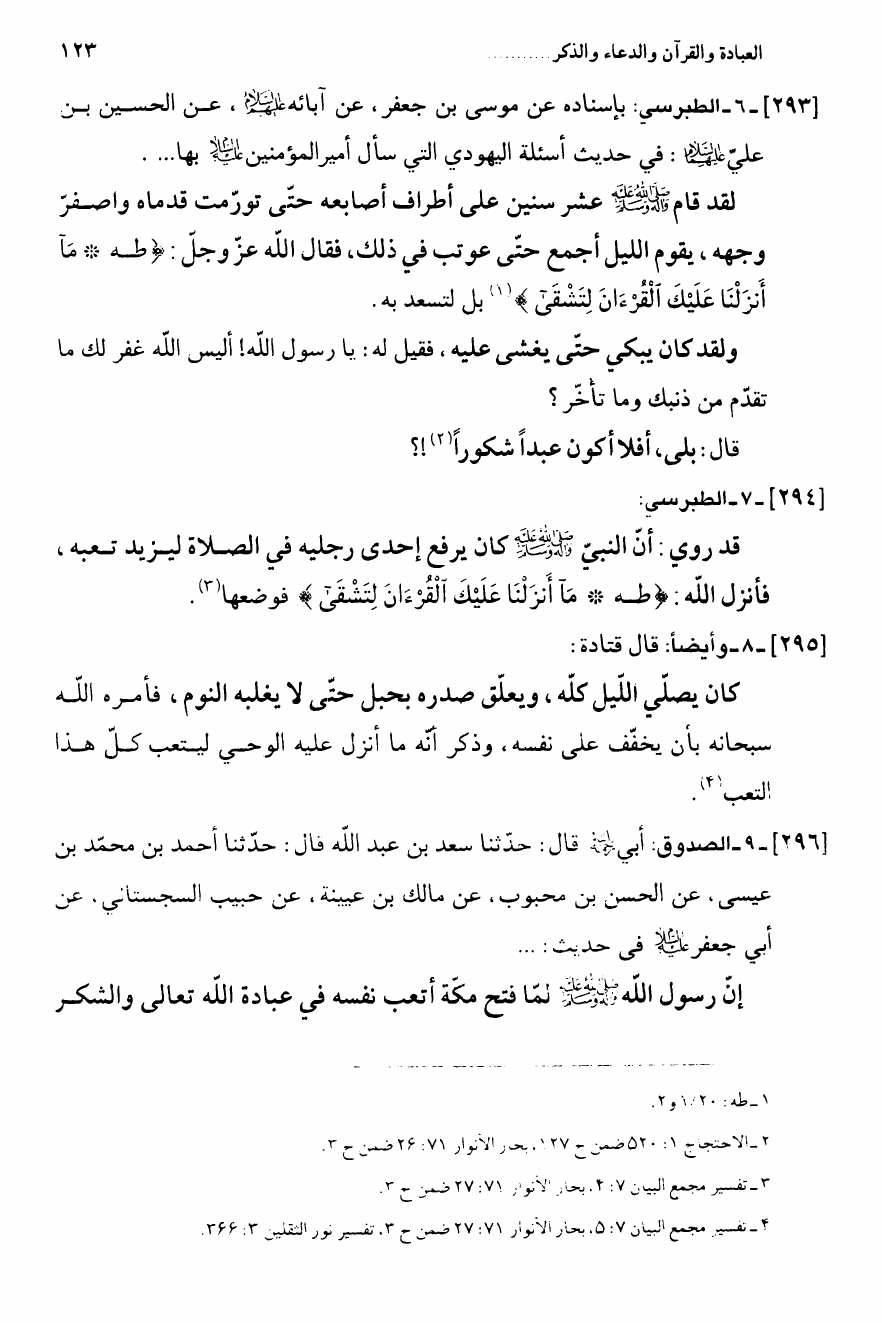 العبادة والقرآن والدعاء والذكر ........... ١٢٣
[٢٩٣] ـ ٦ ـ الطبرسي: بإسناده عن موسى بن جعفر، عن آبائه عليهم السلام، عـن الحسـين بـن
عليّ عليهما السلام: في حديث أسئلة اليهودي التي سأل أميرالمؤمنين عليه السلام بها... .
لقد قام صلى الله عليه وآله وسلم عشر سنين على أطراف أصابعه حتّى تورّمت قدماه واصـفرّ
وجهه، يقوم الليل أجمع حتّى عوتب في ذلك، فقال اللّه عزّ وجلّ: ﴿طـه * مَآ
أَنزَلْنَا عَلَيْكَ ٱلْقُرْءَانَ لِتَشْقَىٰٓ﴾(١) بل لتسعد به.
ولقد كان يبكي حتّى يغشى عليه، فقيل له: يا رسول اللّه! أليس اللّه غفر لك ما
تقدّم من ذنبك وما تأخّر؟
قال: بلى، أفلا أكون عبداً شكوراً(٢)!؟
[٢٩٤] ـ ٧ ـ الطبرسي:
قد روي: أنّ النبيّ صلى الله عليه وآله وسلم كان يرفع إحدى رجليه في الصـلاة ليـزيد تـعبه،
فأنزل اللّه: ﴿طـه * مَآ أَنزَلْنَا عَلَيْكَ ٱلْقُرْءَانَ لِتَشْقَىٰٓ﴾ فوضعها(٣).
[٢٩٥] ـ ٨ ـ وأيضاً: قال قتادة:
كان يصلّي اللّيل كلّه، ويعلّق صدره بحبل حتّى لا يغلبه النوم، فأمـره اللّـه
سبحانه بأن يخفّف على نفسه، وذكر أنّه ما أنزل عليه الوحـي ليـتعب كـلّ هـذا
التعب(۴).
[٢٩٦] ـ ٩ ـ الصدوق: أبي رحمه الله قال: حدّثنا سعد بن عبد اللّه قال: حدّثنا أحمد بن محمّد بن
عيسى، عن الحسن بن محبوب، عن مالك بن عيينة، عن حبيب السجستاني، عن
أبي جعفر عليه السلام في حديث: ...
إنّ رسول اللّه صلى الله عليه وآله وسلم لمّا فتح مكّة أتعب نفسه في عبادة اللّه تعالى والشكـر
١ ـ طه: ٢٠/ ١ و ٢.
٢ ـ الاحتجاج ١: ۵٢٠ ضمن ح ١٢٧، بحار الأنوار ٧١: ٢۶ ضمن ح ٣.
٣ ـ تفسير مجمع البيان ٧: ۴، بحار الأنوار ٧١: ٢٧ ضمن ح ٣.
۴ ـ تفسير مجمع البيان ٧: ۵، بحار الأنوار ٧١: ٢٧ ضمن ح ٣، تفسير نور الثقلين ٣: ٣۶۶.